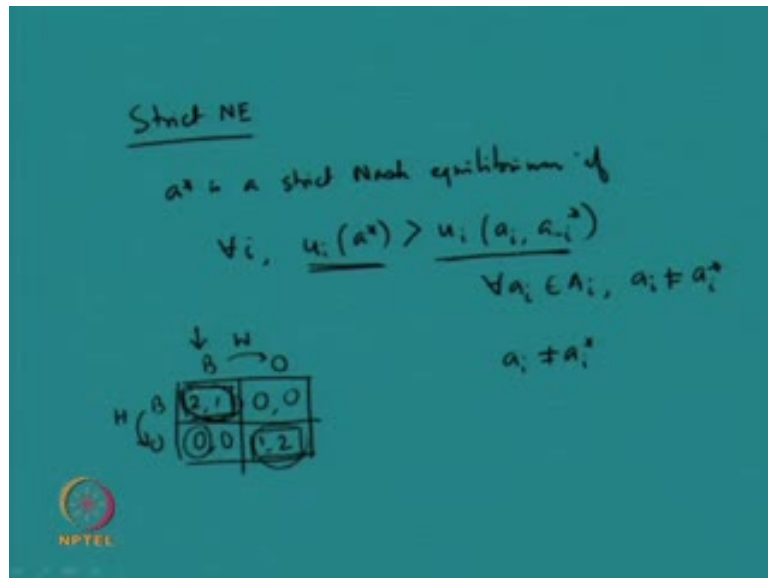 Strict NE
a* is a strict Nash equilibrium if
∀i, u_i(a*) > u_i(a_i, a_-i*)
∀a_i ∈ A_i, a_i ≠ a_i*
a_i ≠ a_i*
↓ W
B → O
H B 2, 1 0, 0
O 0, 0 1, 2
NPTEL